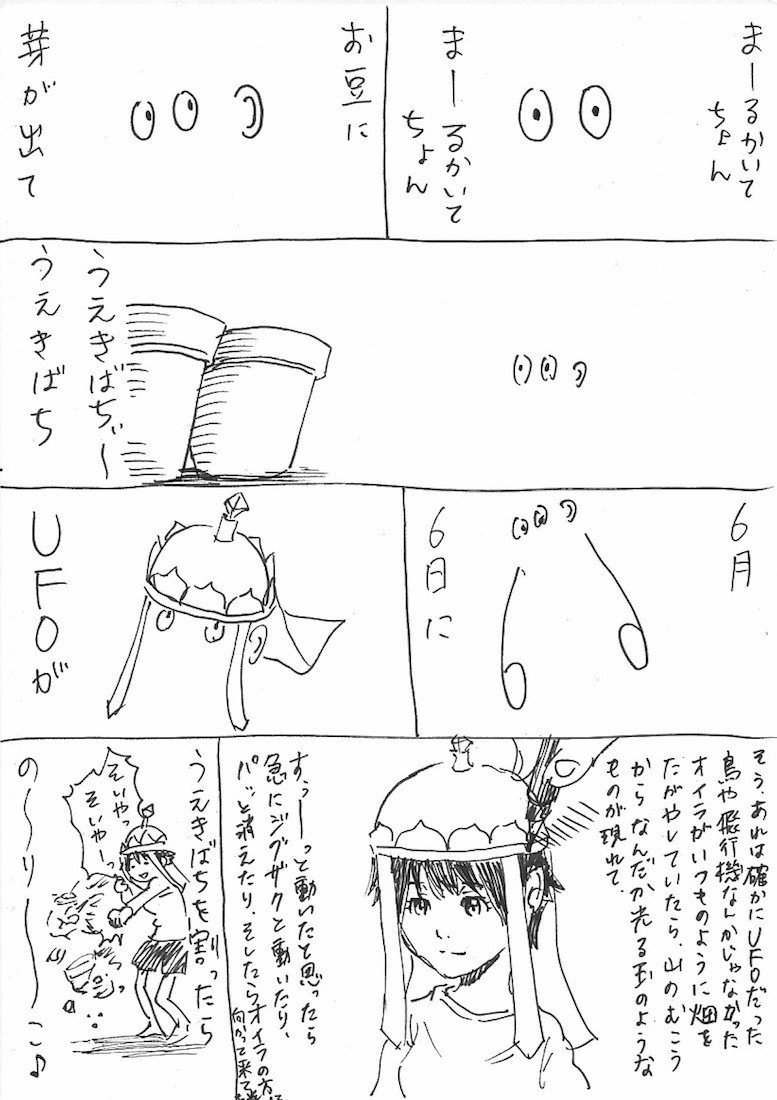 まーるかいて
ちょん
まーるかいて
ちょん
お豆に
芽が出て
うえきばぢぃ～
うえきばち
6月
6日に
UFOが
そう、あれは確かにUFOだった
鳥や飛行機なんかじゃなかった
オイラがいつものように畑を
たがやしていたら、山のむこう
からなんだか光る玉のような
ものが現れて、
すぅーーっと動いたと思ったら
急にジグザグと動いたり、
パッと消えたり、そしたらオイラの方に
向かって来て
うえきばちを割ったら
そいやっ
そいやーっ
の～りーーーこ♪